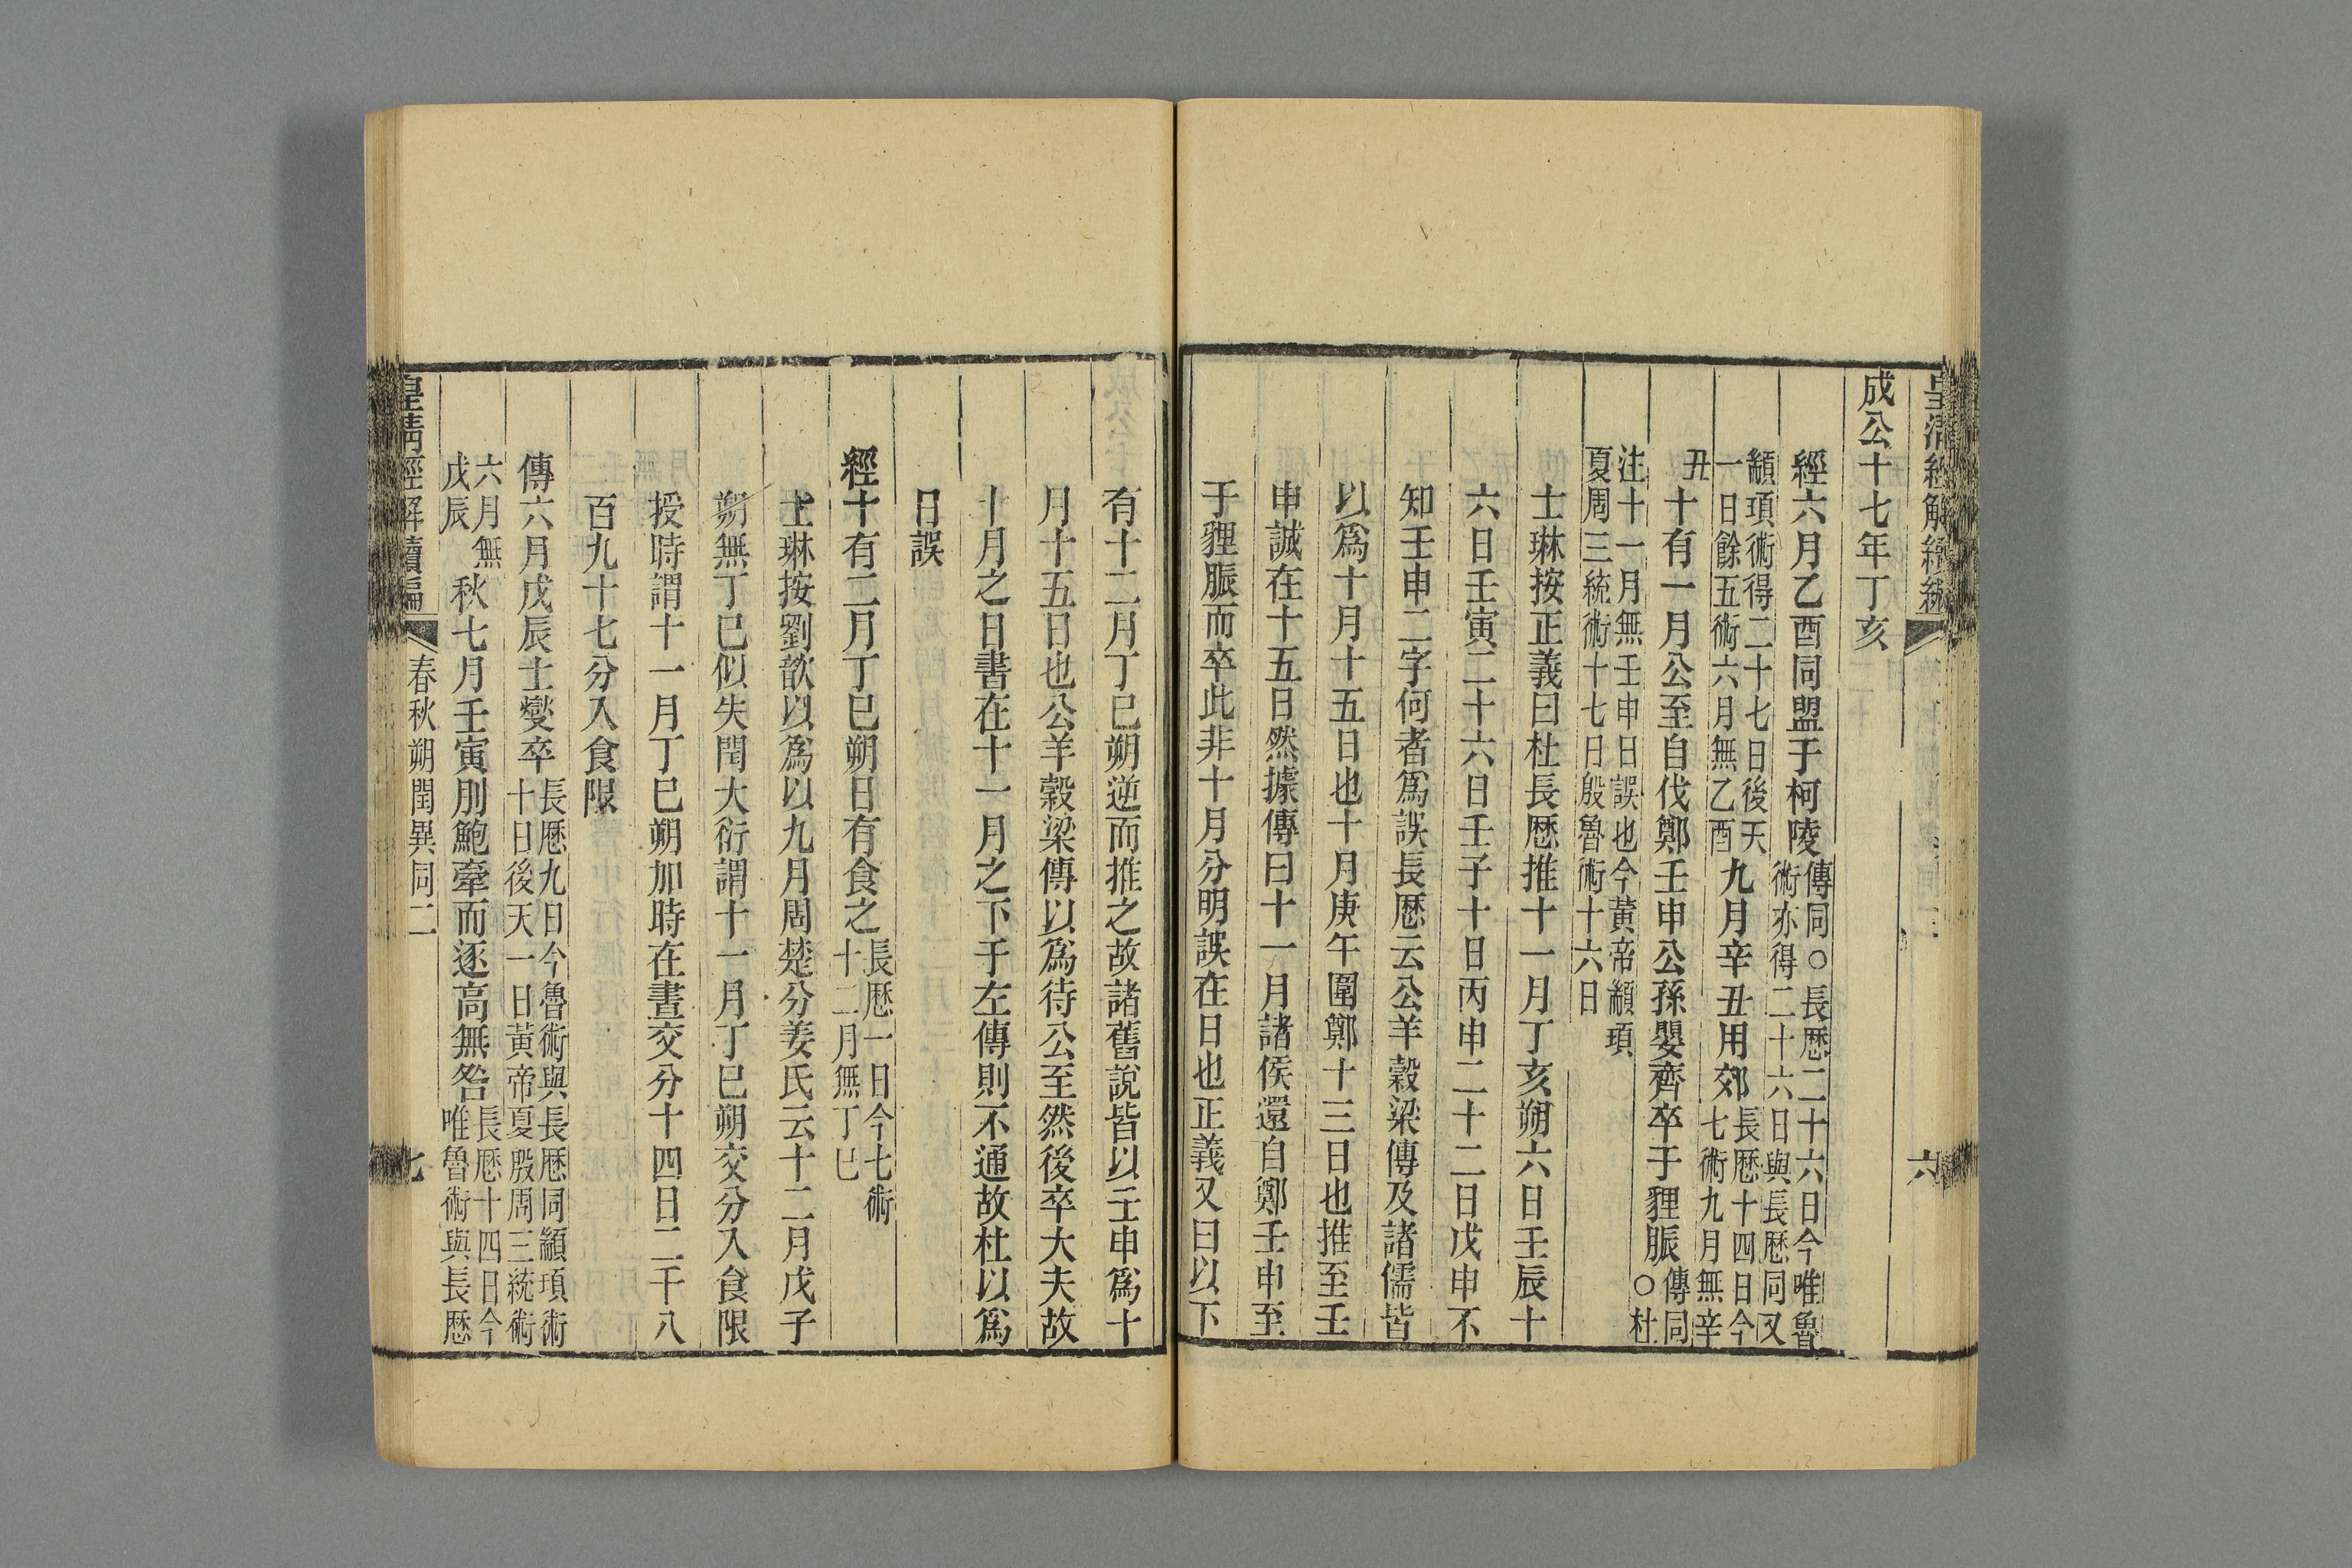 皇清經解續編
六
成公十七年丁亥
經六月乙酉同盟于柯陵傳同○長厯二十六日今唯魯
術亦得二十六日與長厯同又
顓頊術得二十七日後天
一日餘五術六月無乙酉九月辛丑用郊長厯十四日今
七術九月無辛
丑十有一月公至自伐鄭壬申公孫嬰齊卒于貍脤傳同
○杜
注十一月無壬申日誤也今黃帝顓頊
夏周三統術十七日殷魯術十六日
士琳按正義曰杜長厯推十一月丁亥朔六日壬辰十
六日壬寅二十六日壬子十日丙申二十二日戊申不
知壬申二字何者爲誤長厯云公羊穀梁傳及諸儒皆
以爲十月十五日也十月庚午圍鄭十三日也推至壬
申誠在十五日然據傳曰十一月諸侯還自鄭壬申至
于貍脤而卒此非十月分明誤在日也正義又曰以下
有十二月丁巳朔逆而推之故諸舊說皆以壬申爲十
月十五日也公羊穀梁傳以爲待公至然後卒大夫故
十月之日書在十一月之下于左傳則不通故杜以爲
日誤
經十有二月丁巳朔日有食之長厯一日今七術
十二月無丁巳
士琳按劉歆以爲以九月周楚分姜氏云十二月戊子
朔無丁巳似失閏大衍謂十一月丁巳朔交分入食限
授時謂十一月丁巳朔加時在晝交分十四日二千八
百九十七分入食限
傳六月戊辰士燮卒長厯九日今魯術與長厯同顓頊術
十日後天一日黃帝夏殷周三統術
六月無
戊辰秋七月壬寅刖鮑牽而逐高無咎長厯十四日今
唯魯術與長厯
皇清經解續編
春秋朔閏異同二
七